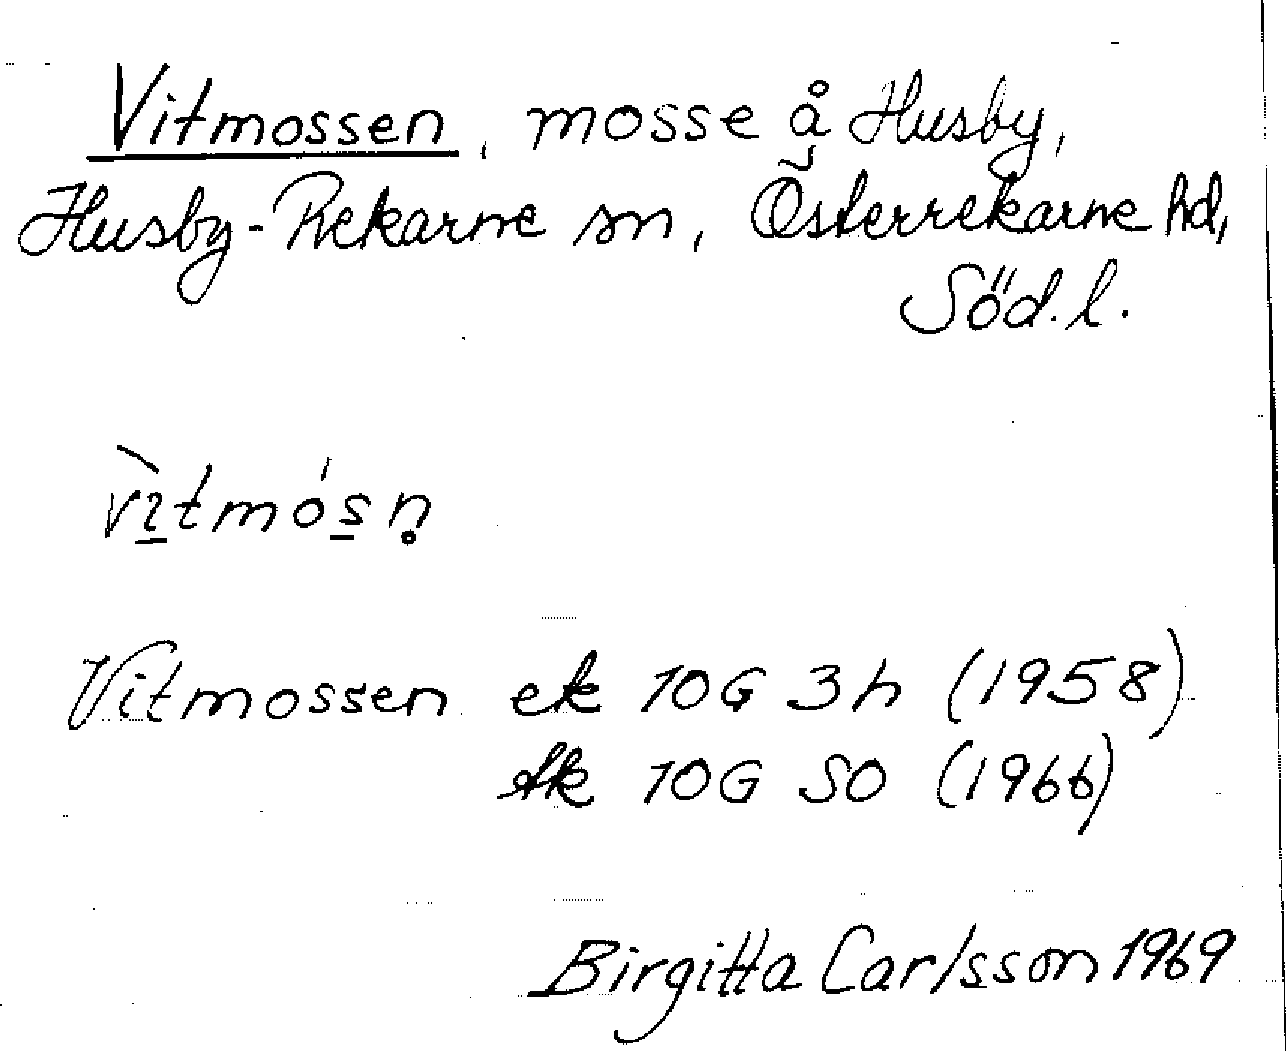 Vitmossen, mosse å Husby,
Husby-Rekarne sn, Österrekarne hd,
Söd. l.
vìtmós̲n̥
Vitmossen ek 10G 3h (1958)
tk 10G SO (1966)
Birgitta Carlsson 1969